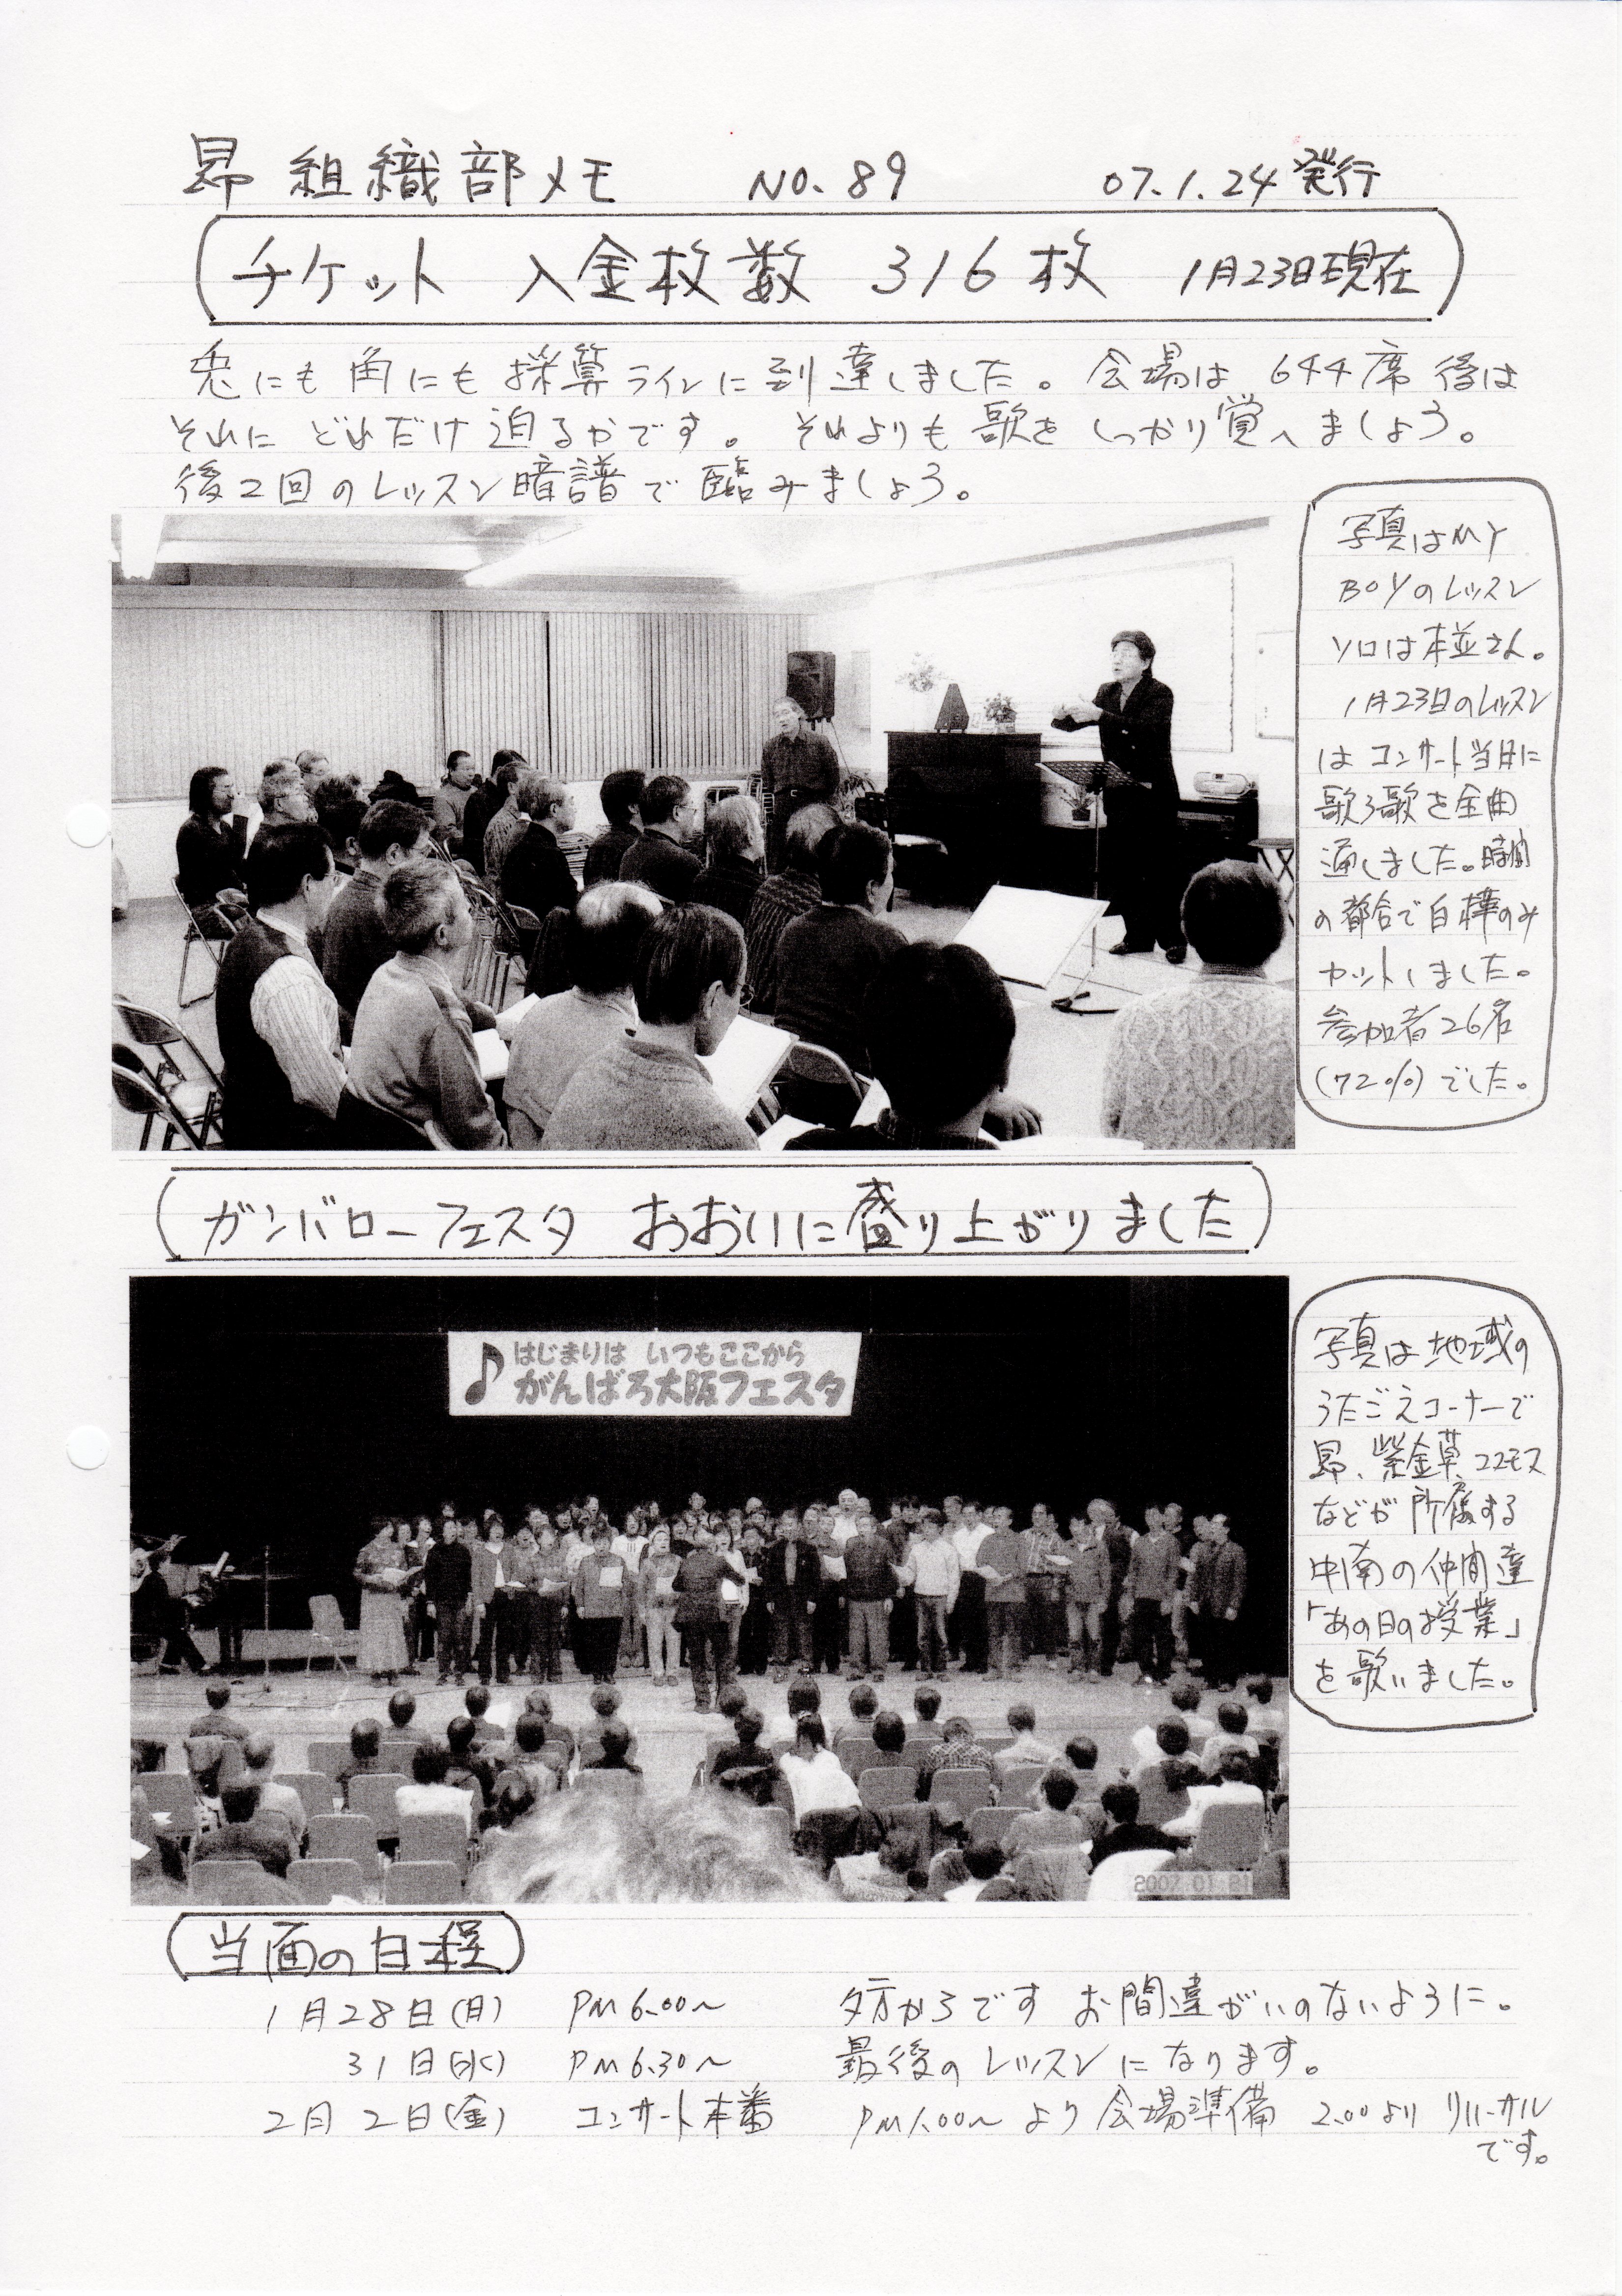 昴 組織部メモ NO.89 07.1.24発行
チケット 入金枚数 316枚 1月23日現在
兎にも角にも採算ラインに到達しました。会場は644席後は
それにどれだけ迫るかです。それよりも歌をしっかり覚へましょう。
後2回のレッスン暗譜で臨みましょう。
写真はMY
BOYのレッスン
ソロは本並さん。
1月23日のレッスン
はコンサート当日に
歌う歌を全曲
通しました。時間
の都合で白樺のみ
カットしました。
参加者26名
(72%)でした。
ガンバローフェスタ おおいに盛り上がりました
はじまりは いつもここから
がんばろ大阪フェスタ
2007 01 21
写真は地域の
うたごえコーナーで
昴、紫金草、コスモス
などが所属する
中南の仲間達
「あの日の授業」
を歌いました。
当面の日程
1月28日(月) PM6.00〜 夕方からです お間違がいのないように。
31日(水) PM6.30〜 最後のレッスンになります。
2月2日(金) コンサート本番 PM1.00〜より会場準備 2.00よりリハーサル
です。